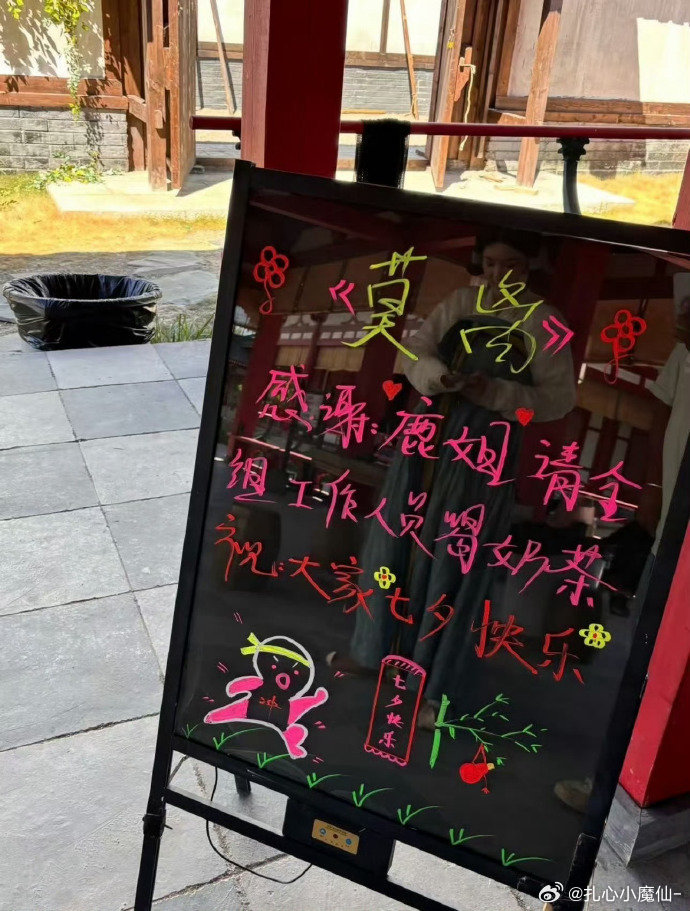 《莫离》
感谢:鹿姐请全
组工作人员喝奶茶
祝:大家七夕快乐
冲
七夕快乐
@扎心小魔仙-